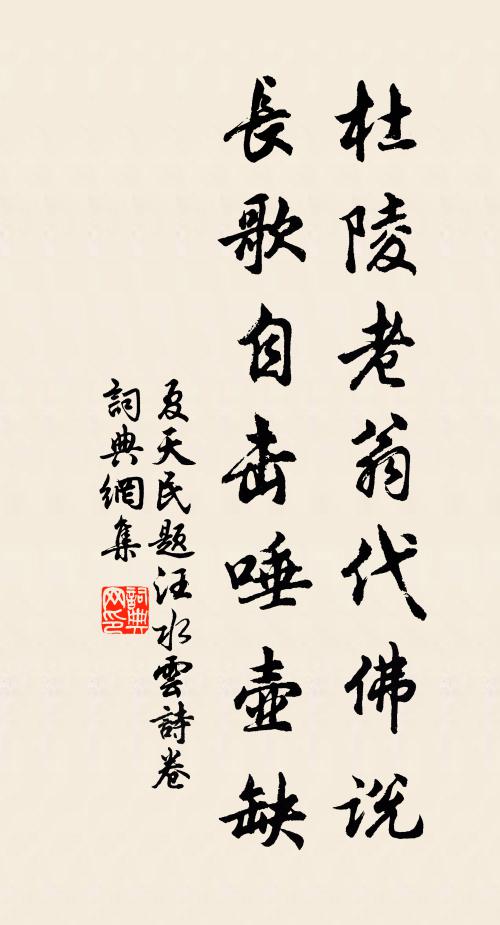 杜陵老翁代佛說
長歌自击唾壺缺
夏天民題汪水雲詩卷
詞典網集
詞典网印